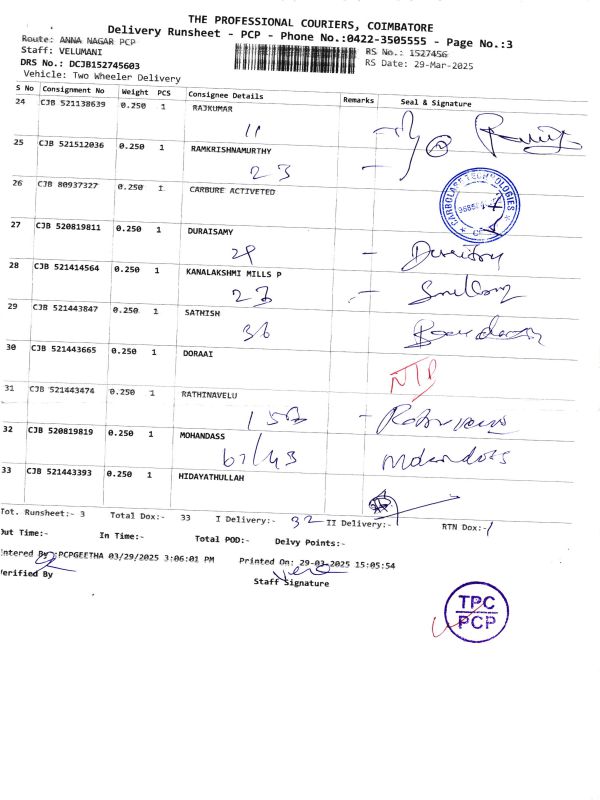 THE PROFESSIONAL COURIERS, COIMBATORE
Delivery Runsheet - PCP - Phone No.:0422-3505555 - Page No.:3
Route: ANNA NAGAR PCP
Staff: VELUMANI
RS No.: 1527456
DRS No.: DCJB152745603
RS Date: 29-Mar-2025
Vehicle: Two Wheeler Delivery
S No Consignment No Weight PCS Consignee Details Remarks Seal & Signature
24 CJB 521138639 0.250 1 RAJKUMAR
11
25 CJB 521512036 0.250 1 RAMKRISHNAMURTHY
23
26 CJB 80937327 0.250 1 CARBURE ACTIVETED
CARBOLABZ TECHNOLOGIES
27 CJB 520819811 0.250 1 DURAISAMY
28 CJB 521414564 0.250 1 KANALAKSHMI MILLS P
23
29 CJB 521443847 0.250 1 SATHISH
36
30 CJB 521443665 0.250 1 DORAAI
NTP
31 CJB 521443474 0.250 1 RATHINAVELU
32 CJB 520819819 0.250 1 MOHANDASS
67/43
33 CJB 521443393 0.250 1 HIDAYATHULLAH
Tot. Runsheet:- 3 Total Dox:- 33 I Delivery:- 32 II Delivery:- RTN Dox:-1
Out Time:- In Time:- Total POD:- Delvy Points:-
Entered By:PCPGEETHA 03/29/2025 3:06:01 PM Printed On: 29-03-2025 15:05:54
Verified By Staff Signature
TPC
PCP